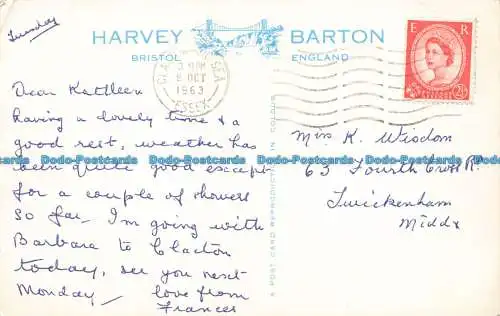 Tuesday
HARVEY BARTON
BRISTOL ENGLAND
E R
2½
8 OCT
1963
ESSEX
Dear Kathleen
having a lovely time & a
good rest, weather has
been quite good except
for a couple of showers
so far. I'm going with
Barbara to Clacton
today, see you next
Monday - love from
Frances
A POST CARD REPRODUCTION IN COLOUR
Miss K. Wisdom
63 Fourth Cross Rd
Twickenham
Middx
Dodo-Postcards Dodo-Postcards Dodo-Postcards Dodo-Postcards
Dodo-Postcards Dodo-Postcards Dodo-Postcards Dodo-Postcards